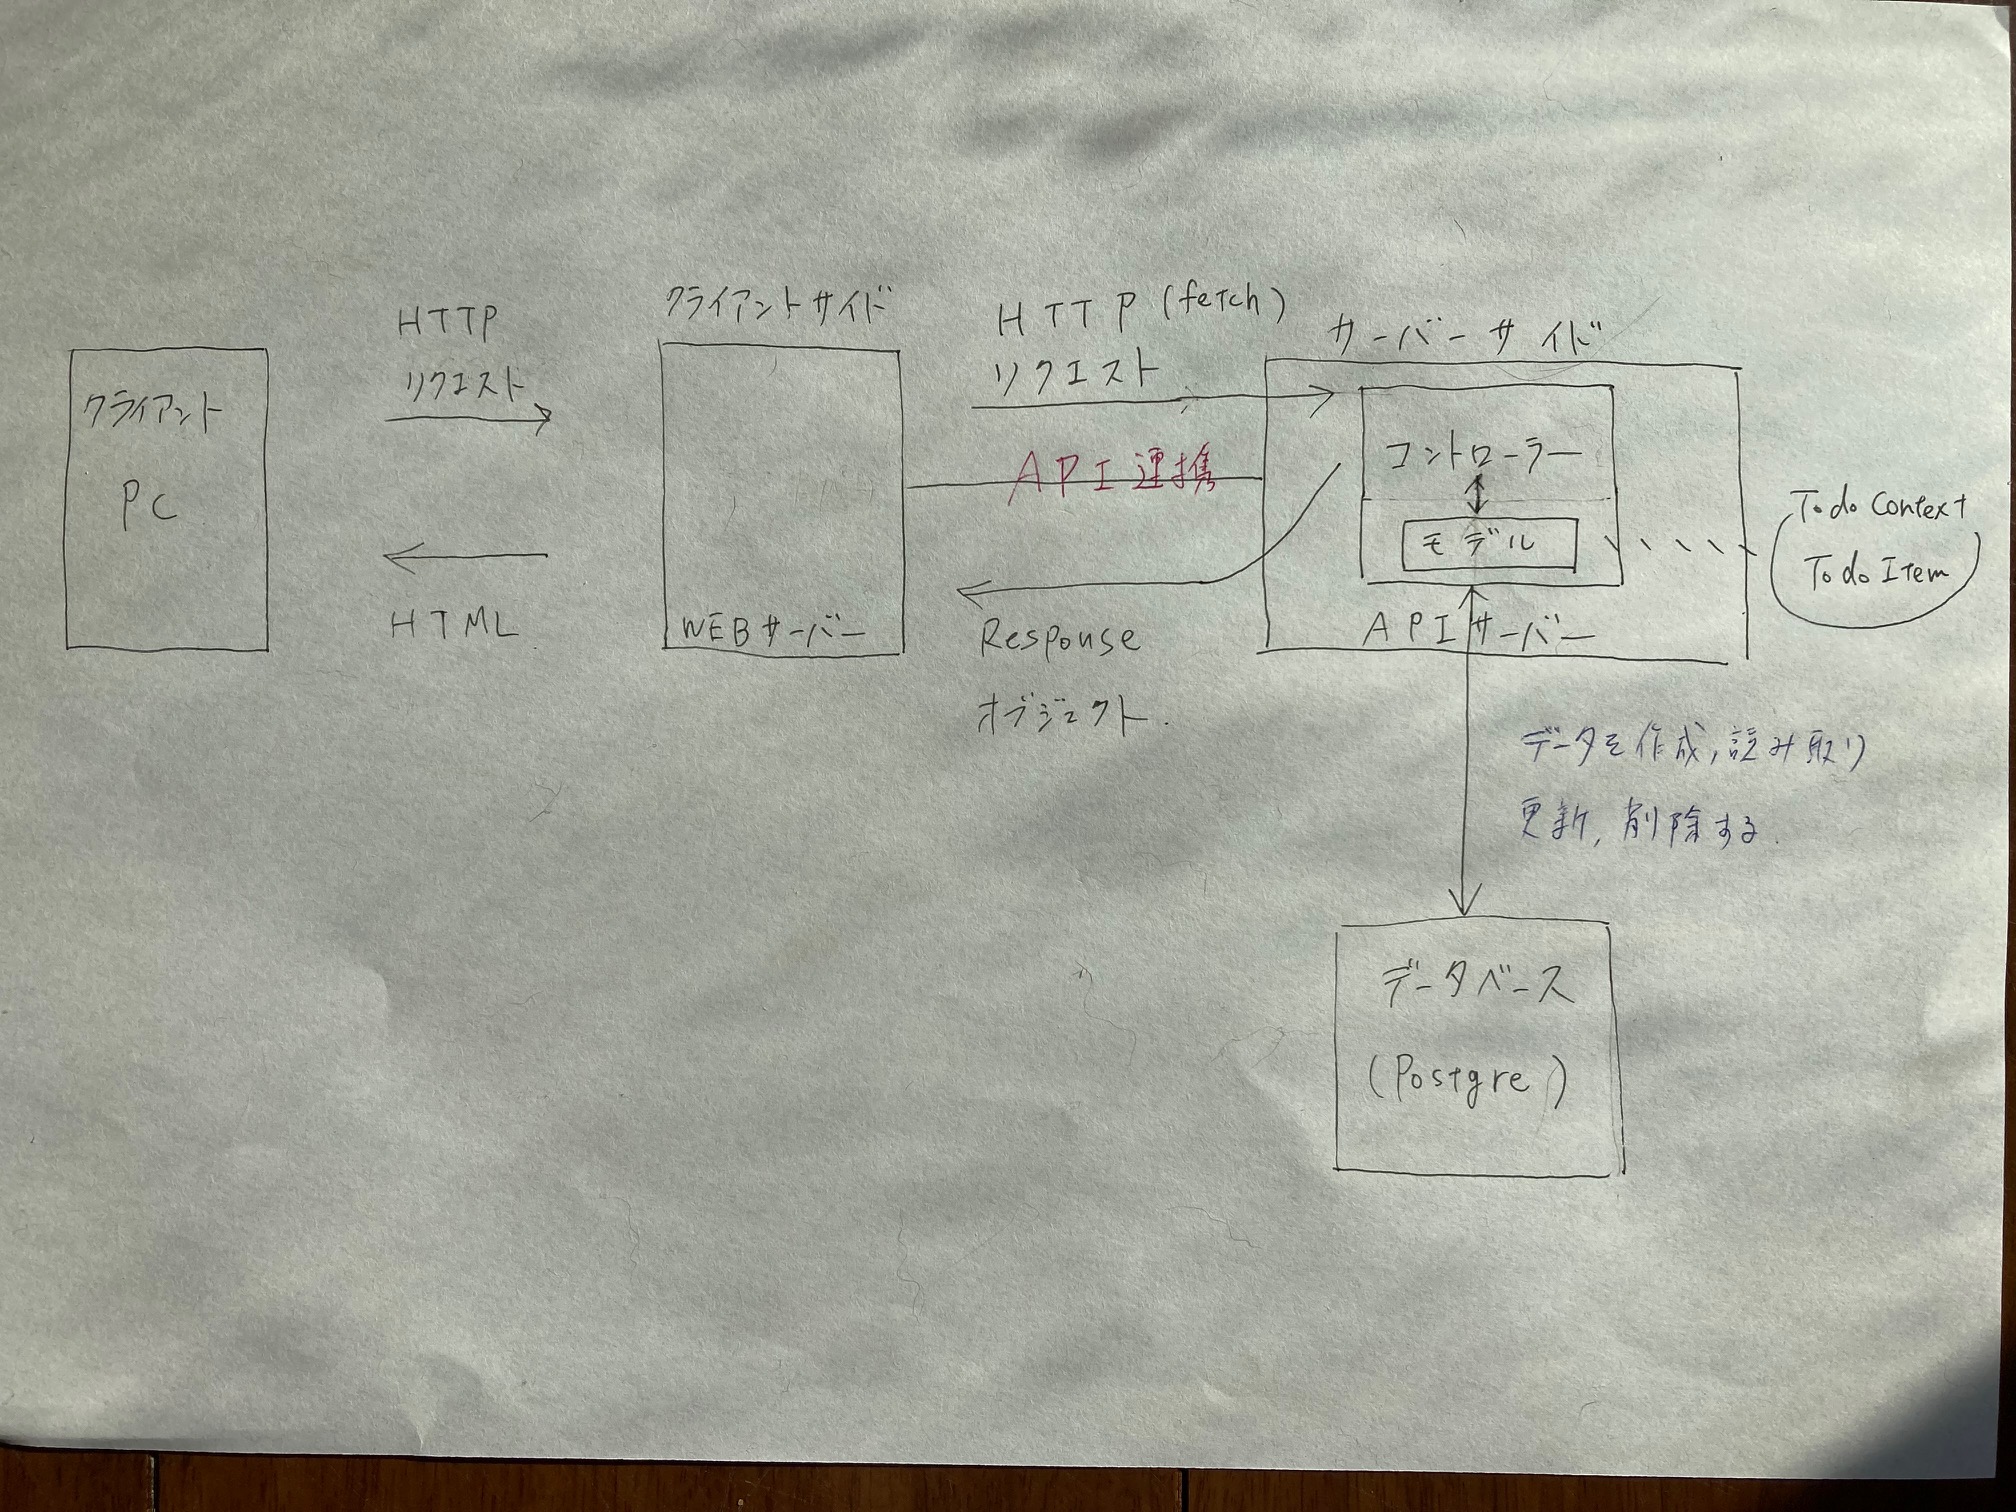 クライアント
PC
HTTP
リクエスト
HTML
クライアントサイド
WEBサーバー
HTTP (fetch)
リクエスト
API連携
Response
オブジェクト.
サーバーサイド
コントローラー
モデル
APIサーバー
Todo Context
Todo Item
データを作成,読み取り
更新,削除する.
データベース
(Postgre)